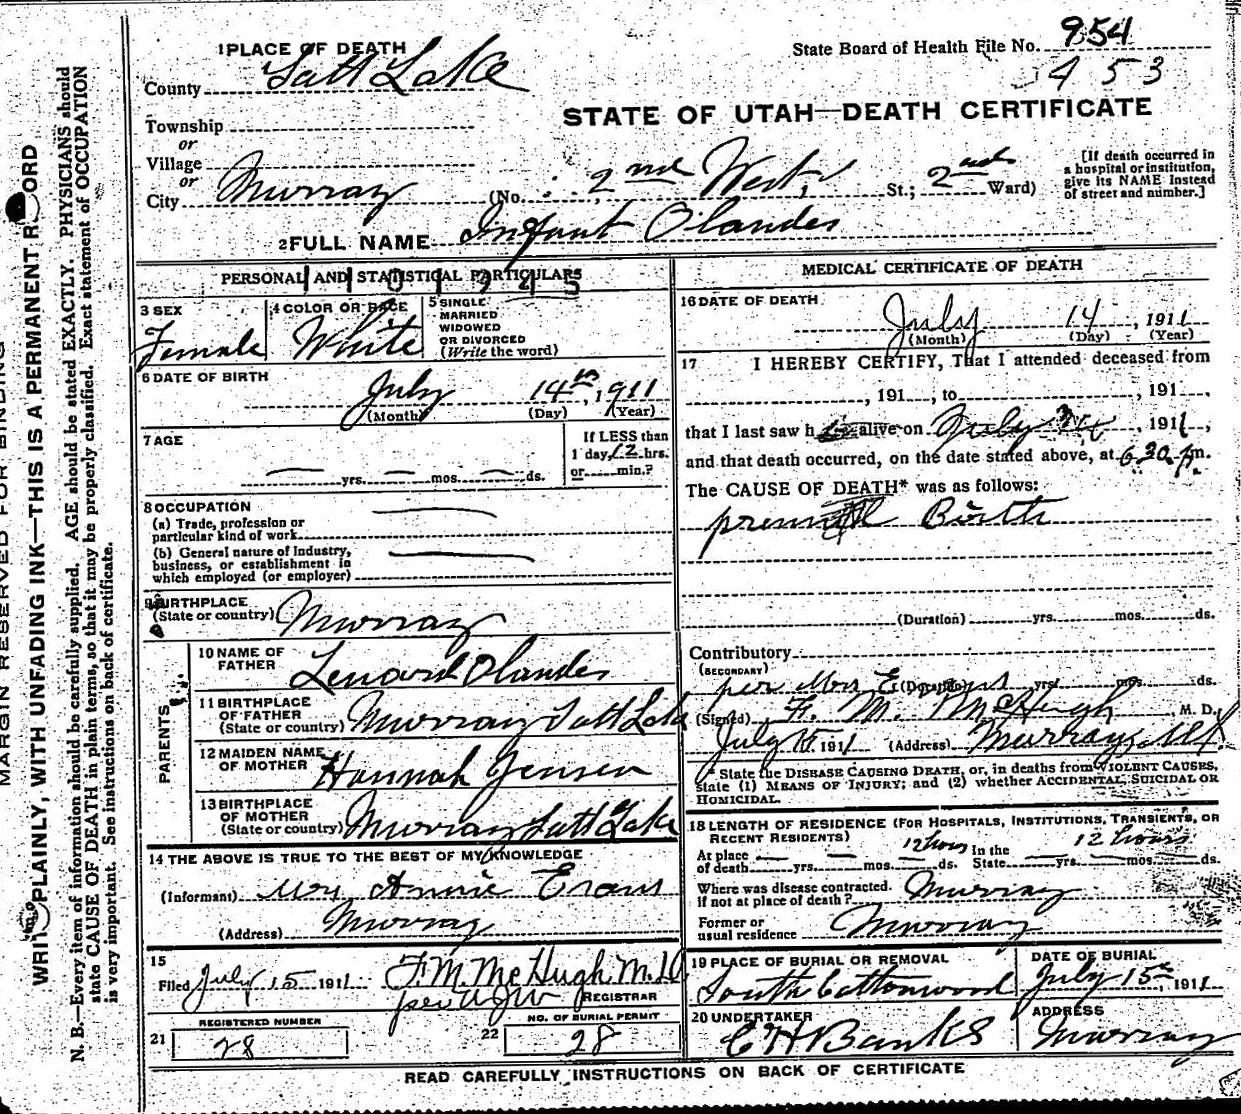 State Board of Health File No. 954
453
1 PLACE OF DEATH
County Salt Lake
STATE OF UTAH—DEATH CERTIFICATE
Township
or
Village
or
City Murray (No. 2nd West, St.; 2nd Ward)
[If death occurred in
a hospital or institution,
give its NAME instead
of street and number.]
2 FULL NAME Infant Olander
PERSONAL AND STATISTICAL PARTICULARS
3 SEX
Female
4 COLOR OR RACE
White
5 SINGLE
MARRIED
WIDOWED
OR DIVORCED
(Write the word)
6 DATE OF BIRTH
July 14th, 1911
(Month) (Day) (Year)
7 AGE
yrs. mos. ds.
If LESS than
1 day, 12 hrs.
or min.?
8 OCCUPATION
(a) Trade, profession or
particular kind of work
(b) General nature of Industry,
business, or establishment in
which employed (or employer)
9 BIRTHPLACE
(State or country) Murray
PARENTS
10 NAME OF
FATHER Lenard Olander
11 BIRTHPLACE
OF FATHER
(State or country) Murray Salt Lake
12 MAIDEN NAME
OF MOTHER Hannah Jensen
13 BIRTHPLACE
OF MOTHER
(State or country) Murray Salt Lake
14 THE ABOVE IS TRUE TO THE BEST OF MY KNOWLEDGE
(Informant) Mrs Annie Evans
(Address) Murray
15
Filed July 15 1911 F. M. McHugh M.D
REGISTRAR
REGISTERED NUMBER
21 28
NO. OF BURIAL PERMIT
22 28
MEDICAL CERTIFICATE OF DEATH
16 DATE OF DEATH
July 14, 1911
(Month) (Day) (Year)
17 I HEREBY CERTIFY, That I attended deceased from
, 191 , to , 191 ,
that I last saw h alive on July 14, 1911,
and that death occurred, on the date stated above, at 6.30 p.m.
The CAUSE OF DEATH* was as follows:
Birth
(Duration) yrs. mos. ds.
Contributory
(SECONDARY)
per Mrs Evans (Duration) yrs. mos. ds.
(Signed) F. M. McHugh, M. D.
July 15 1911 (Address) Murray, Ut
* State the DISEASE CAUSING DEATH, or, in deaths from VIOLENT CAUSES,
state (1) MEANS OF INJURY; and (2) whether ACCIDENTAL, SUICIDAL OR
HOMICIDAL.
18 LENGTH OF RESIDENCE (FOR HOSPITALS, INSTITUTIONS, TRANSIENTS, OR
RECENT RESIDENTS)
At place 12 hours In the 12 hours
of death yrs. mos. ds. State yrs. mos. ds.
Where was disease contracted.
if not at place of death? Murray
Former or
usual residence Murray
19 PLACE OF BURIAL OR REMOVAL
South Cottonwood
DATE OF BURIAL
July 15th, 1911
20 UNDERTAKER
C H Banks
ADDRESS
Murray
READ CAREFULLY INSTRUCTIONS ON BACK OF CERTIFICATE
MARGIN RESERVED FOR BINDING
WRITE PLAINLY, WITH UNFADING INK—THIS IS A PERMANENT RECORD
N. B.—Every item of information should be carefully supplied. AGE should be stated EXACTLY. PHYSICIANS should
state CAUSE OF DEATH in plain terms, so that it may be properly classified. Exact statement of OCCUPATION
is very important. See instructions on back of certificate.